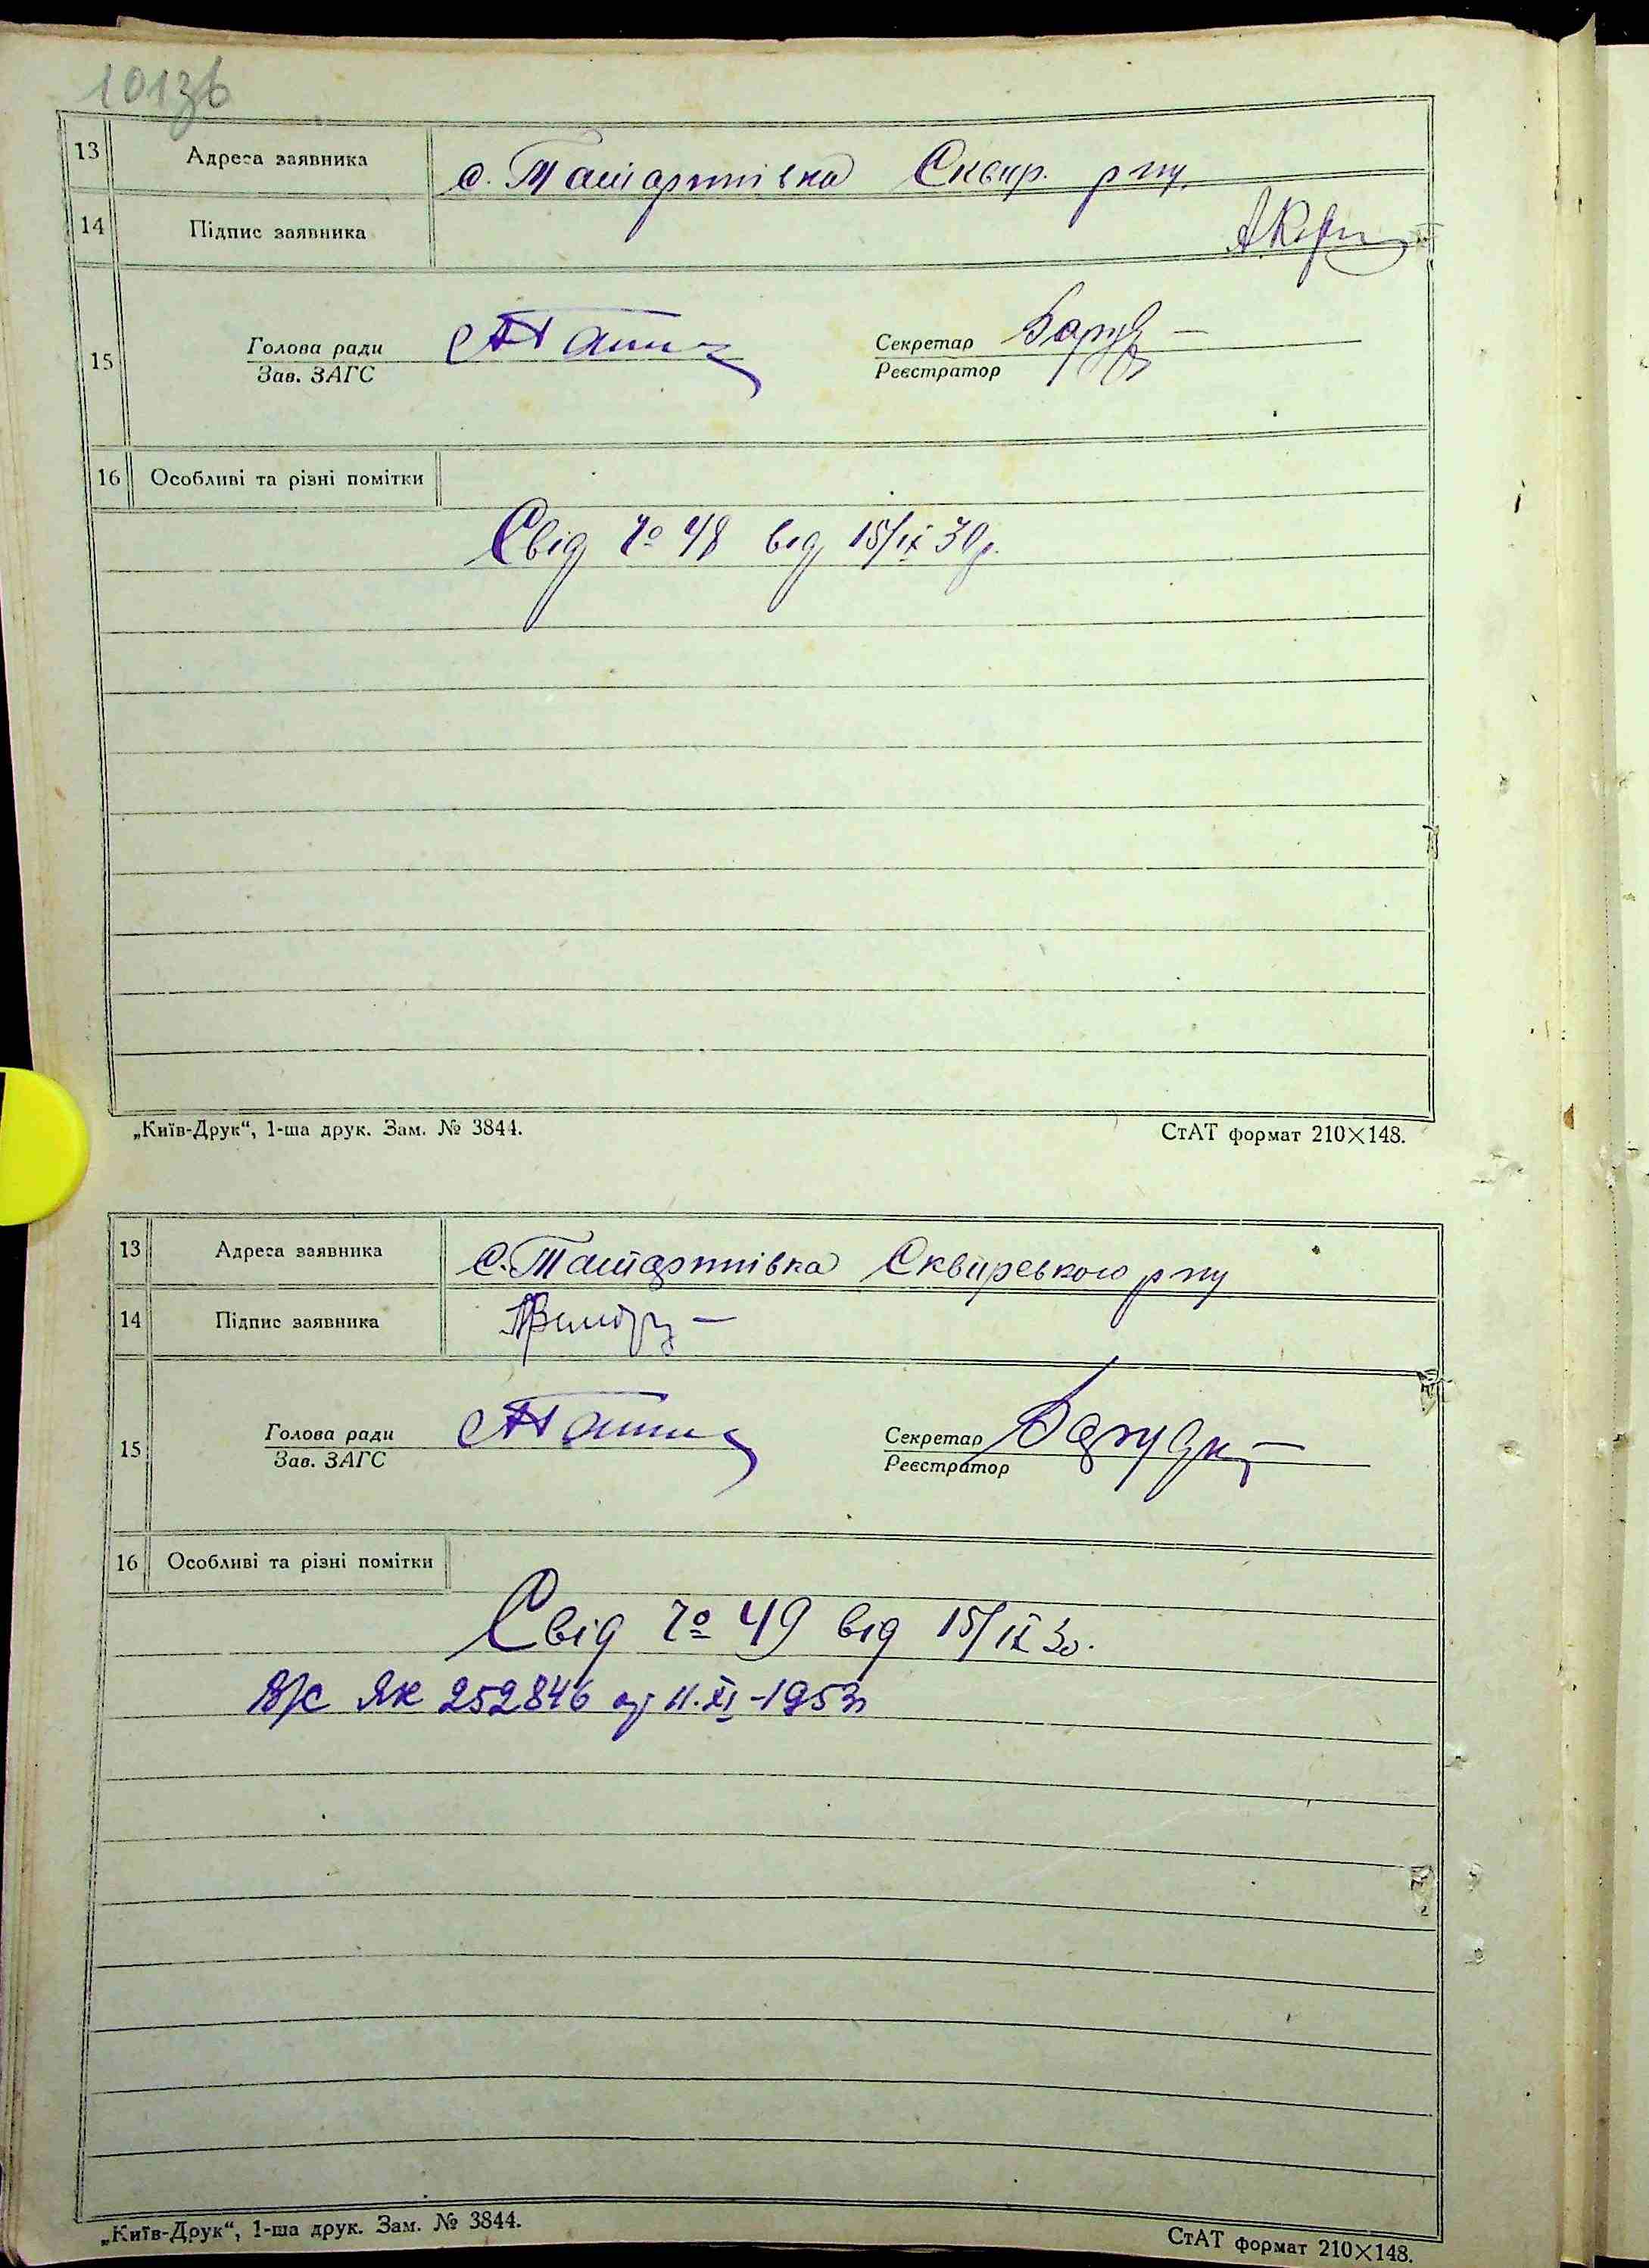 101зв
13 Адреса заявника с. Татаринівка Сквир. р-ну
14 Підпис заявника
15 Голова ради Секретар
Зав. ЗАГС Реєстратор
16 Особливі та різні помітки
Свід № 48 від 15/IX 30 р.
„Київ-Друк“, 1-ша друк. Зам. № 3844. СтАТ формат 210×148.
13 Адреса заявника с. Татаринівка Сквирського р-ну
14 Підпис заявника
15 Голова ради Секретар
Зав. ЗАГС Реєстратор
16 Особливі та різні помітки
Свід № 49 від 15/IX 30.
ЯЖ 252846 от 11.XI-1953
„Київ-Друк“, 1-ша друк. Зам. № 3844. СтАТ формат 210×148.